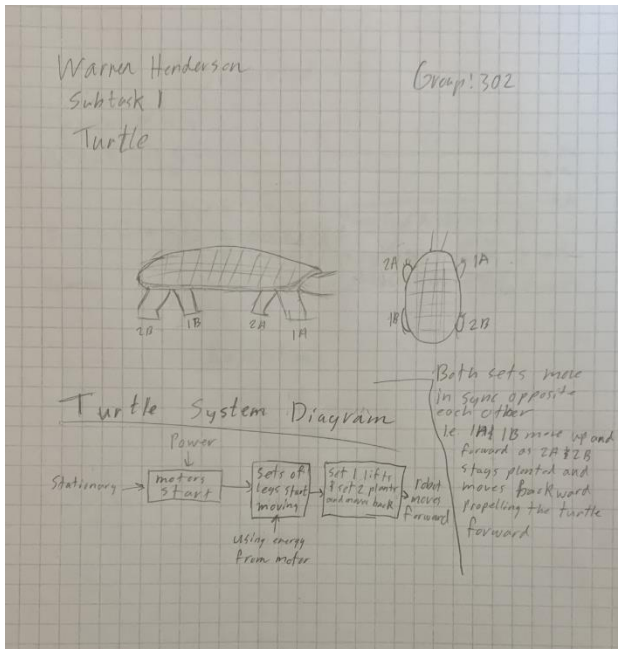 Warren Henderson
Group: 302
Subtask 1
Turtle
2B
1B
2A
1A
2A
1A
1B
2B
Turtle System Diagram
Power
Stationary
motors
start
sets of
legs start
moving
using energy
from motor
set 1 lifts
& set 2 plants
and move back
robot
moves
forward
Both sets move
in sync opposite
each other
i.e 1A & 1B move up and
forward as 2A & 2B
stays planted and
moves backward
propelling the turtle
forward